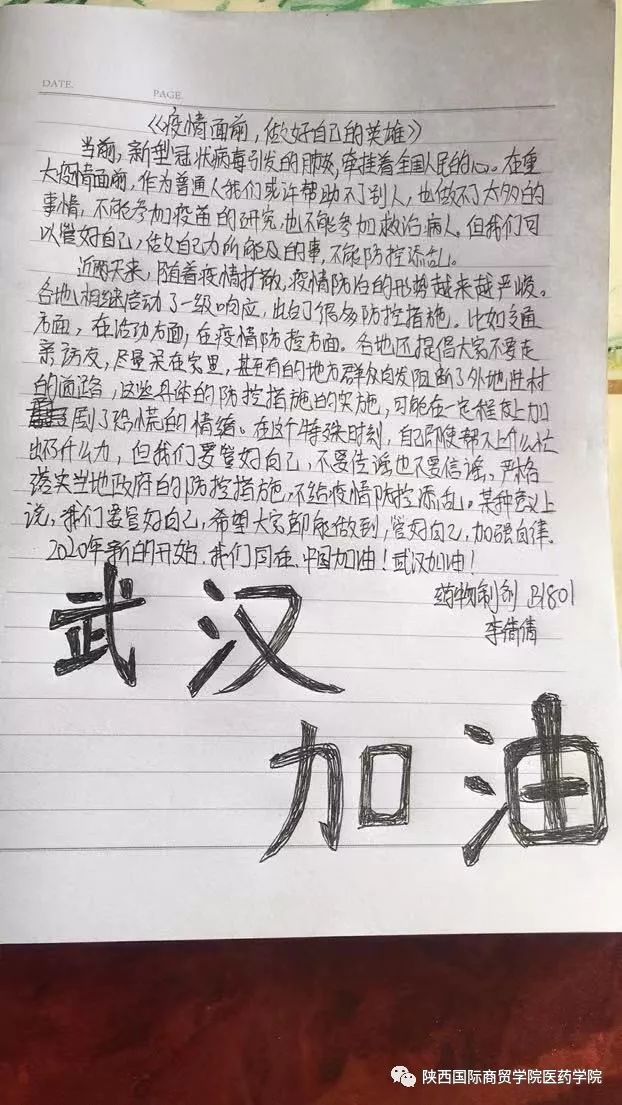 DATE.
PAGE.
《疫情面前,做好自己的英雄》
当前,新型冠状病毒引发的肺炎,牵挂着全国人民的心。在重
大疫情面前,作为普通人我们或许帮助不了别人,也做不了太多的
事情,不能参加疫苗的研究,也不能参加救治病人。但我们可
以管好自己,做自己力所能及的事,不能防控添乱。
近两天来,随着疫情扩散,疫情防治的形势越来越严峻。
各地相继启动了一级响应,出台了很多防控措施。比如交通
方面,在活动方面,在疫情防控方面。各地还提倡大家不要走
亲访友,尽量呆在家里,甚至有的地方群众自发阻断了外地进村
的道路,这些具体的防控措施的实施,可能在一定程度上加
剧了恐慌的情绪。在这个特殊时刻,自己即使帮不上什么忙
出不了什么力,但我们要管好自己,不要传谣也不要信谣,严格
落实当地政府的防控措施,不给疫情防控添乱。某种意义上
说,我们要管好自己,希望大家都能做到,管好自己,加强自律。
2020年新的开始,我们同在,中国加油!武汉加油!
药物制剂 B1801
李倩倩
武汉
加油
陕西国际商贸学院医药学院